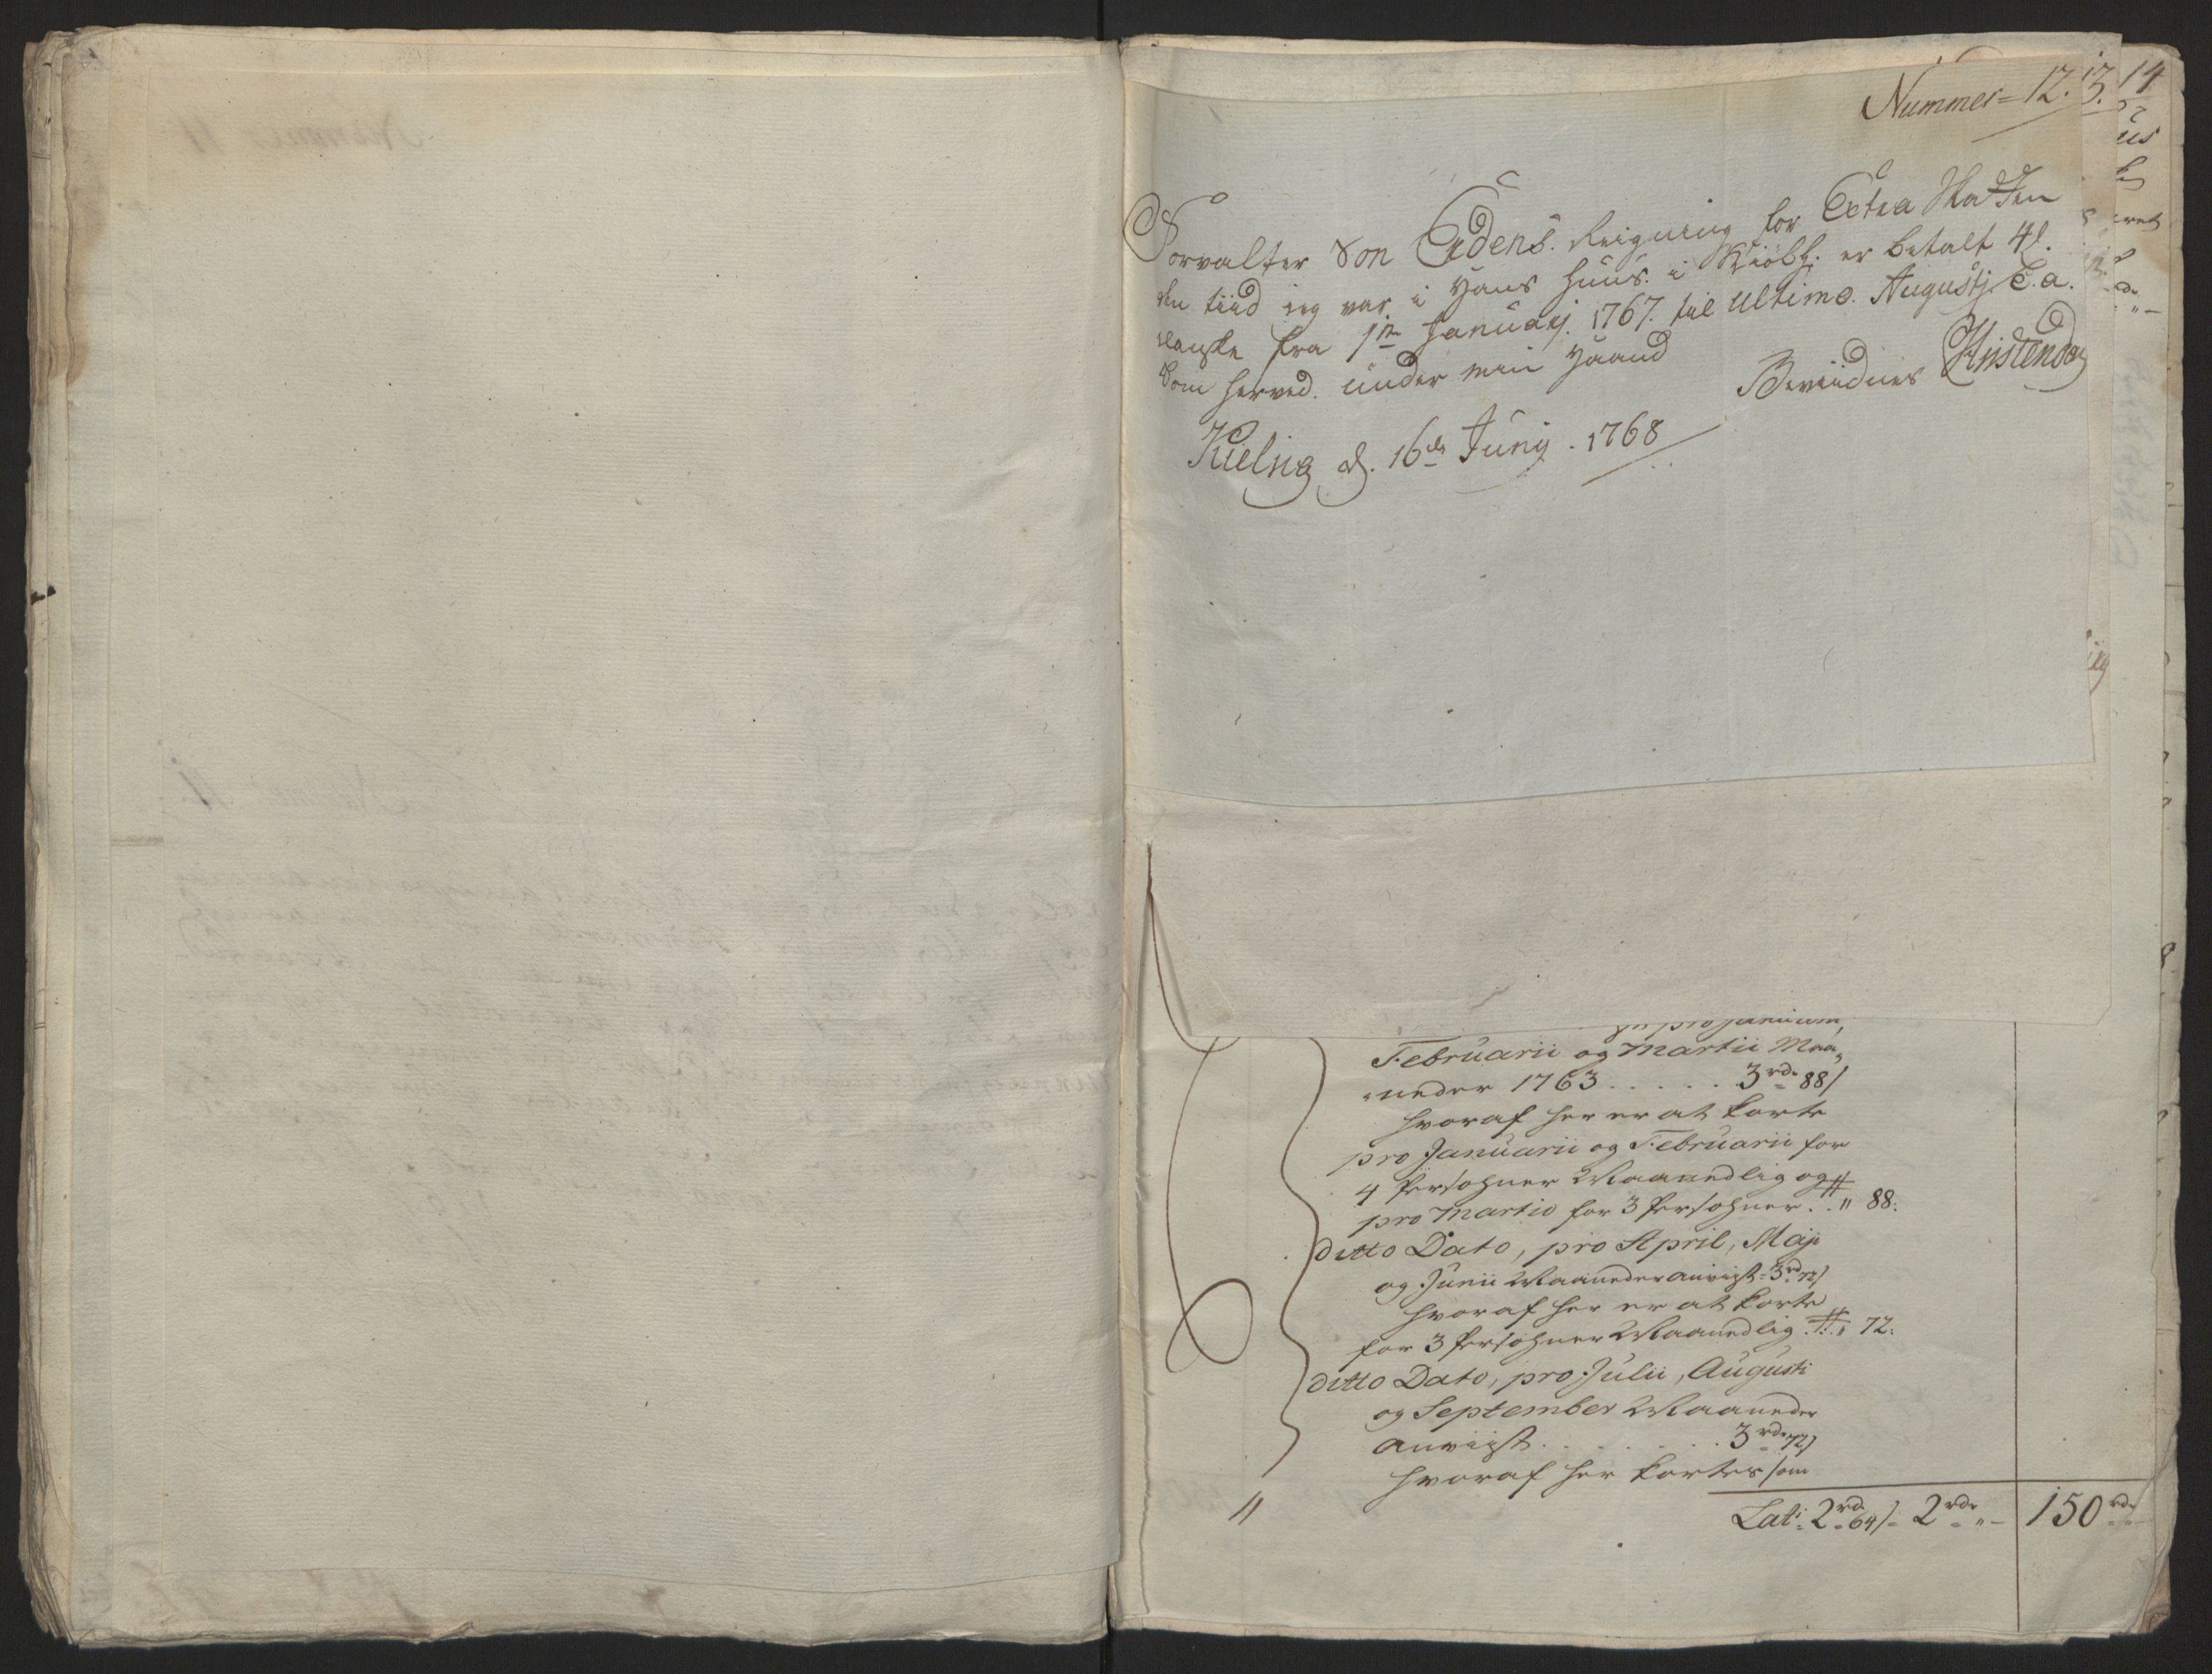 Nummer = 12. 13. 14
Forvalter Von Edens. Reigning for Extra Skatten
den tiid ieg var i Hans Huus. i Kiöbh: er betalt 4
danske fra 1te Januarj. 1767. til ultimo. Augustj. C. a.
Som herved. under min Haand Beviidnes
d. 16de Junij. 1768
pro Janúarii
Februarii og Martii Maa-
neder 1763 . . . . . 3 rd 88 s
hvoraf her er at korte
pro Januarii og Februarii for
4 Persohner Maanedlig og
pro Martio for 3 Persohner . . " 88:
ditto Dato, pro April, Maji
og Junii Maaneder anviist = 3 rd 72 s
hvoraf her er at korte
for 3 Persohner Maanedlig . " 72:
ditto Dato, pro Julii, Augusti
og September Maaneder
anviist . . . . . . . 3 rd 72 s
hvoraf her kortes som
Lat: 2 rd 64 s = 2 rdr " - 150 rdr